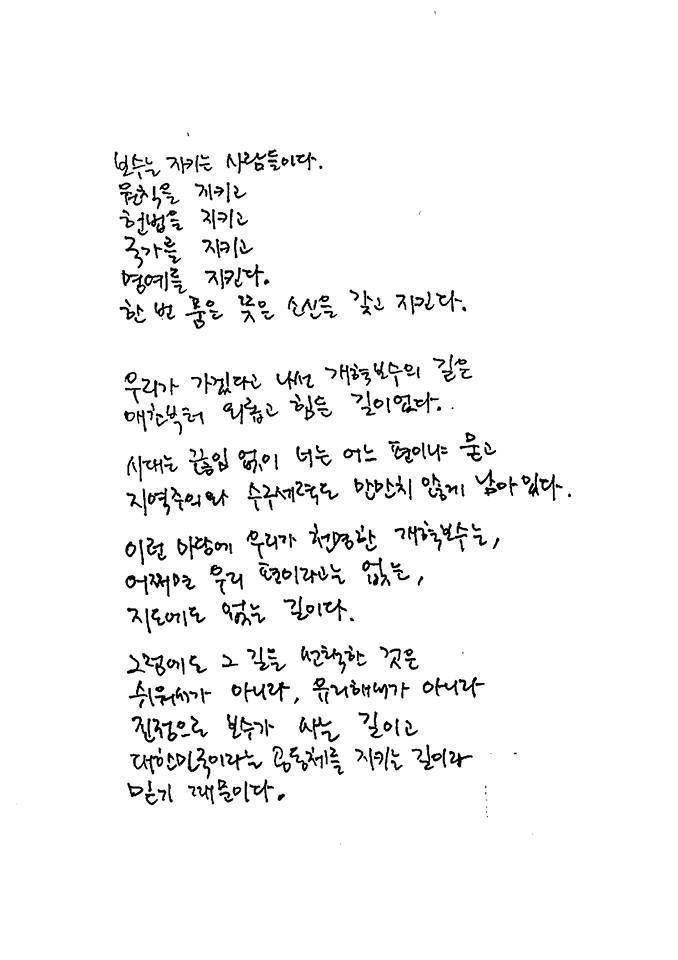 보수는 지키는 사람들이다.
원칙을 지키고
헌법을 지키고
국가를 지키고
명예를 지킨다.
한 번 품은 뜻은 소신을 갖고 지킨다.
우리가 가겠다고 나선 개혁보수의 길은
애초부터 외롭고 힘든 길이었다.
시대는 끊임 없이 너는 어느 편이냐 묻고
지역주의와 수구세력도 만만치 않게 남아있다.
이런 마당에 우리가 천명한 개혁보수는,
어쩌면 우리 편이라고는 없는,
지도에도 없는 길이다.
그럼에도 그 길을 선택한 것은
쉬워서가 아니라, 유리해서가 아니라
진정으로 보수가 사는 길이고
대한민국이라는 공동체를 지키는 길이라
믿기 때문이다.